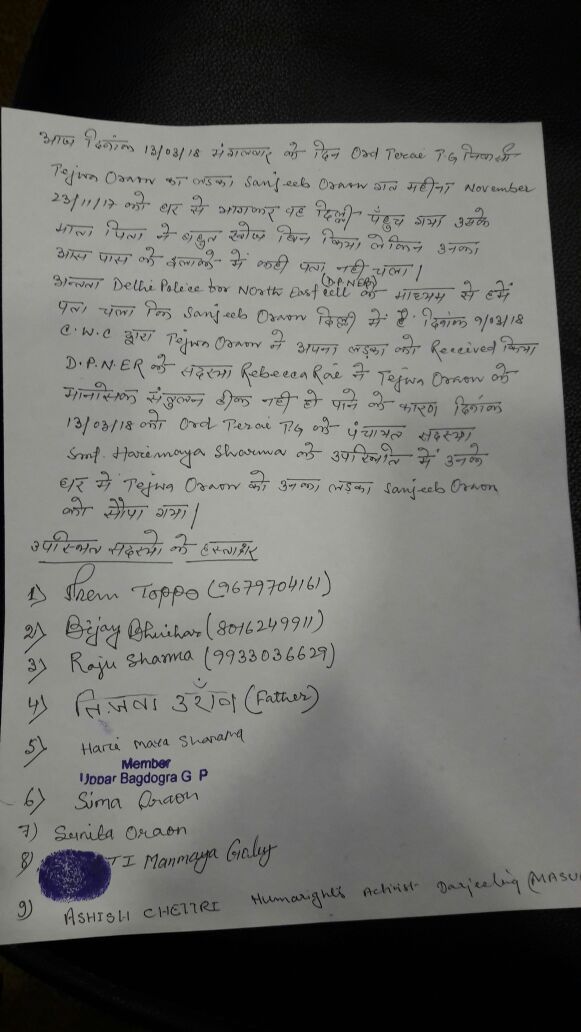 आज दिनांक 13/03/18 मंगलवार के दिन Ord Terai T.G निवासी
Tejwa Oraon का लडका Sanjeeb Oraon गत महीना November
23/11/17 को घर से भागकर वह दिल्ली पहुँच गया उसके
माता पिता ने बहुत खोज बिन किया लेकिन उनका
आस पास के इलाके में कही पता नही चला|
अन्तता Delhi Police for North East cell (D.P.NER) के माध्यम से हमें
पता चला कि Sanjeeb Oraon दिल्ली में है. दिनांक 9/03/18
C.W.C द्वारा Tejwa Oraon ने अपना लडका को Received किया
D.P.N.ER के सदस्या Rebecca Rae ने Tejwa Oraon के
मानसिक संतुलन ठीक नही हो पाने के कारण दिनांक
13/03/18 को Ord Terai T.G के पंचायत सदस्या
Smt. Harimaya Sharma के उपस्थिति में उनके
घर में Tejwa Oraon को उनका लडका Sanjeeb Oraon
को सौंपा गया|
उपस्थित सदस्यो के हस्ताक्षर
1) Prem Toppo (9679704161)
2) Bijay Bhuihar (8016249911)
3) Raju Sharma (9933036629)
4) तिजवा उराँव (Father)
5) Hari maya Sharama
Member
Upper Bagdogra G P
6) Sima Oraon
7) Sunita Oraon
8) TI Manmaya
9) ASHISH CHETTRI Humarights Activist Darjeeling (MASU